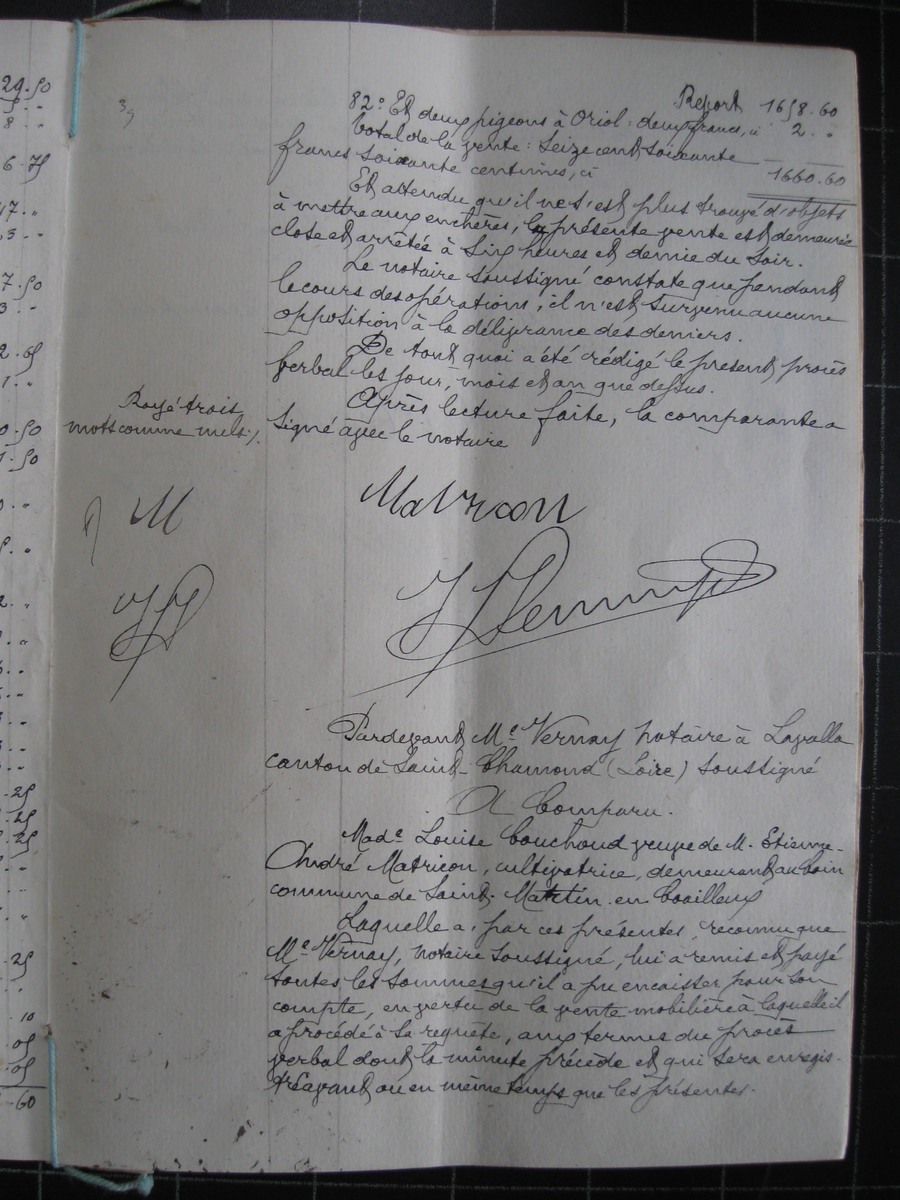 29.50
5 ..
8 ..
6.75
17 ..
3 ..
7.50
3 ..
2.05
1 ..
0.50
1.50
0 ..
2. ..
.25
.25
.25
.25
.10
.05
.05
.60
Report 1658.60
82° Et deux pigeons à Oriol : deux francs, ci 2. ..
Total de la vente : Seize cent soixante
francs soixante centimes, ci 1660.60
Et attendu qu'il ne s'est plus trouvé d'objets
à mettre aux enchères, la présente vente est demeurée
close et arrêtée à Six heures et demie du soir.
Le notaire soussigné constate que pendant
le cours des opérations, il n'est survenu aucune
opposition à la délivrance des deniers.
De tout quoi a été rédigé le present procès
verbal les jour, mois et an que dessus.
Après lecture faite, la comparante a
signé avec le notaire
Rayé trois
mots comme nuls ./.
M
Matricon
JV
J Vernay
Pardevant Me Vernay notaire à Lavalla
canton de Saint-Chamond (Loire) soussigné
A Comparu.
Made Louise Couchoud veuve de M. Etienne-
André Matricon, cultivatrice, demeurant au
commune de Saint-Martin-en-Coailleux
Laquelle a, par ces présentes, reconnu que
Me Vernay, notaire soussigné, lui a remis et payé
toutes les sommes qu'il a pu encaisser pour son
compte, en vertu de la vente mobilière à laquelle il
a procédé à sa requête, aux termes du procès
verbal dont la minute précède et qui sera enregis-
tré avant ou en même temps que les présentes.